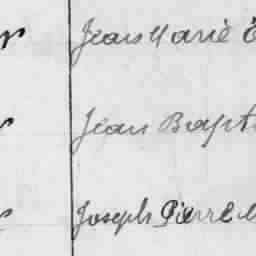 Jean Marie
Jean Bapt
Joseph Pierre